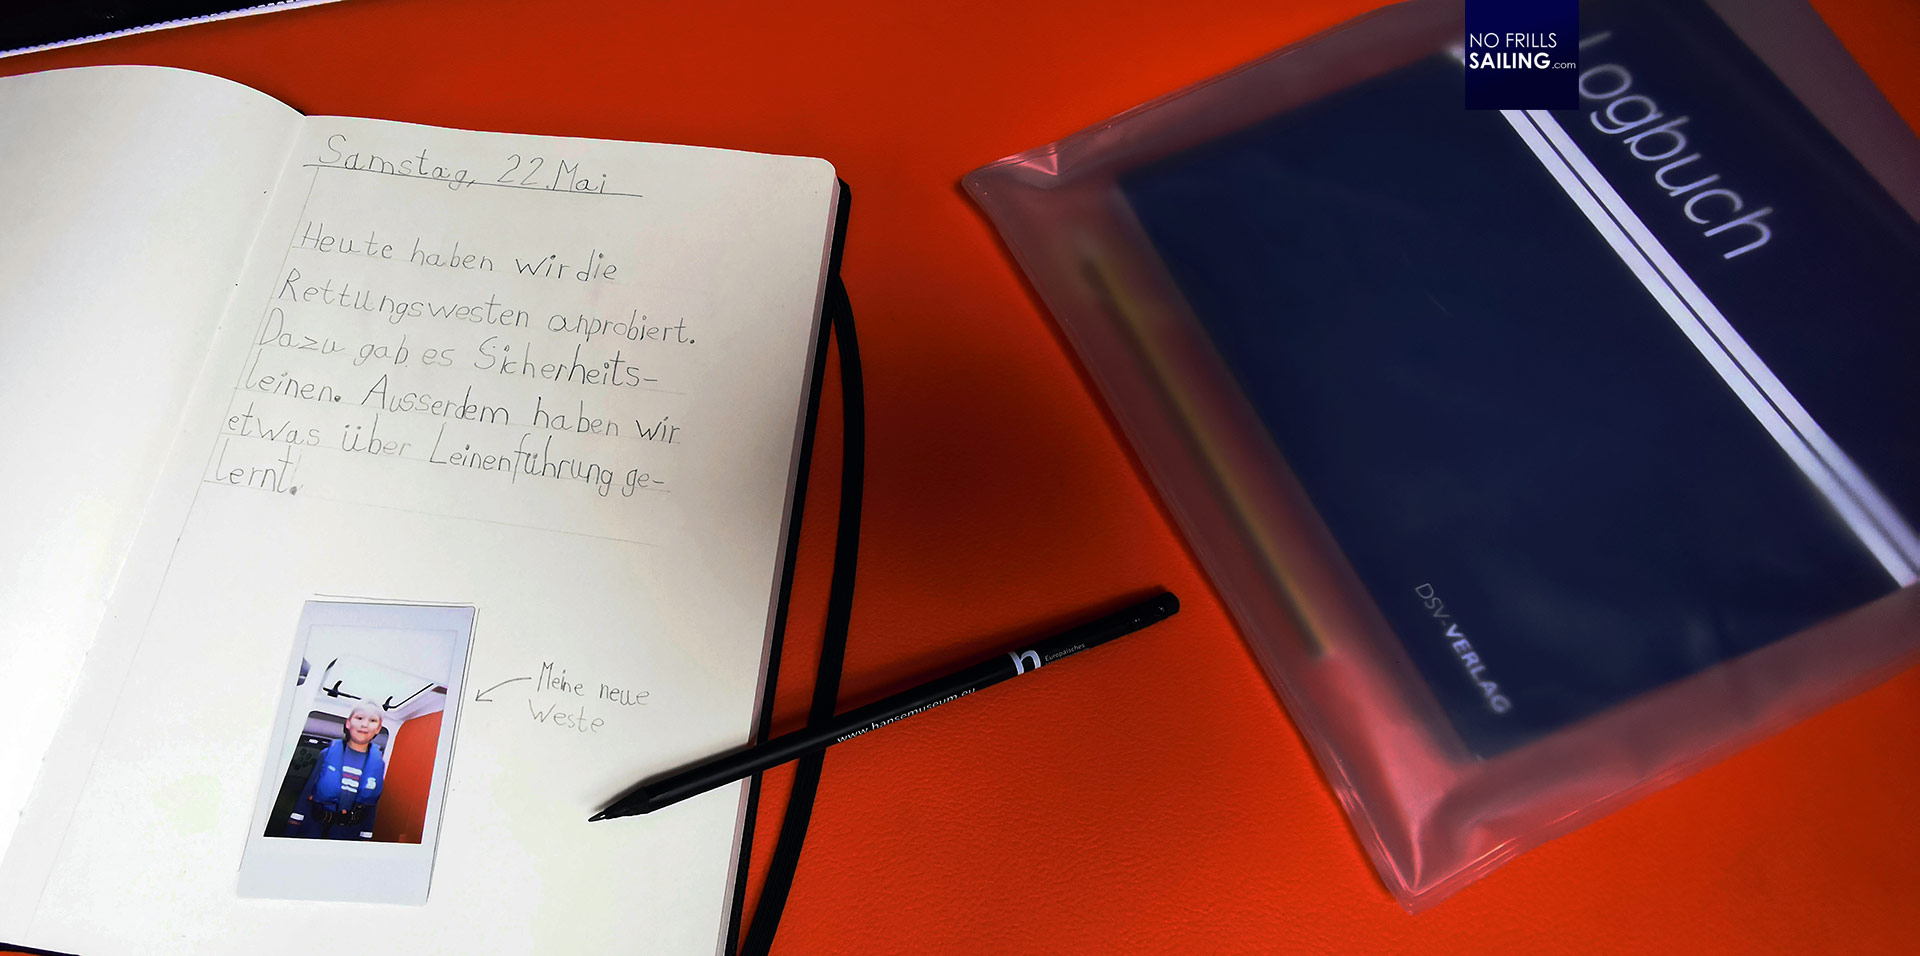 Samstag, 22. Mai
Heute haben wir die
Rettungswesten anprobiert.
Dazu gab es Sicherheits-
leinen. Ausserdem haben wir
etwas über Leinenführung ge-
lernt.
Meine neue
Weste
www.hansemuseum.eu
h
Europäisches
NO FRILLS
SAILING.com
Logbuch
DSV-VERLAG